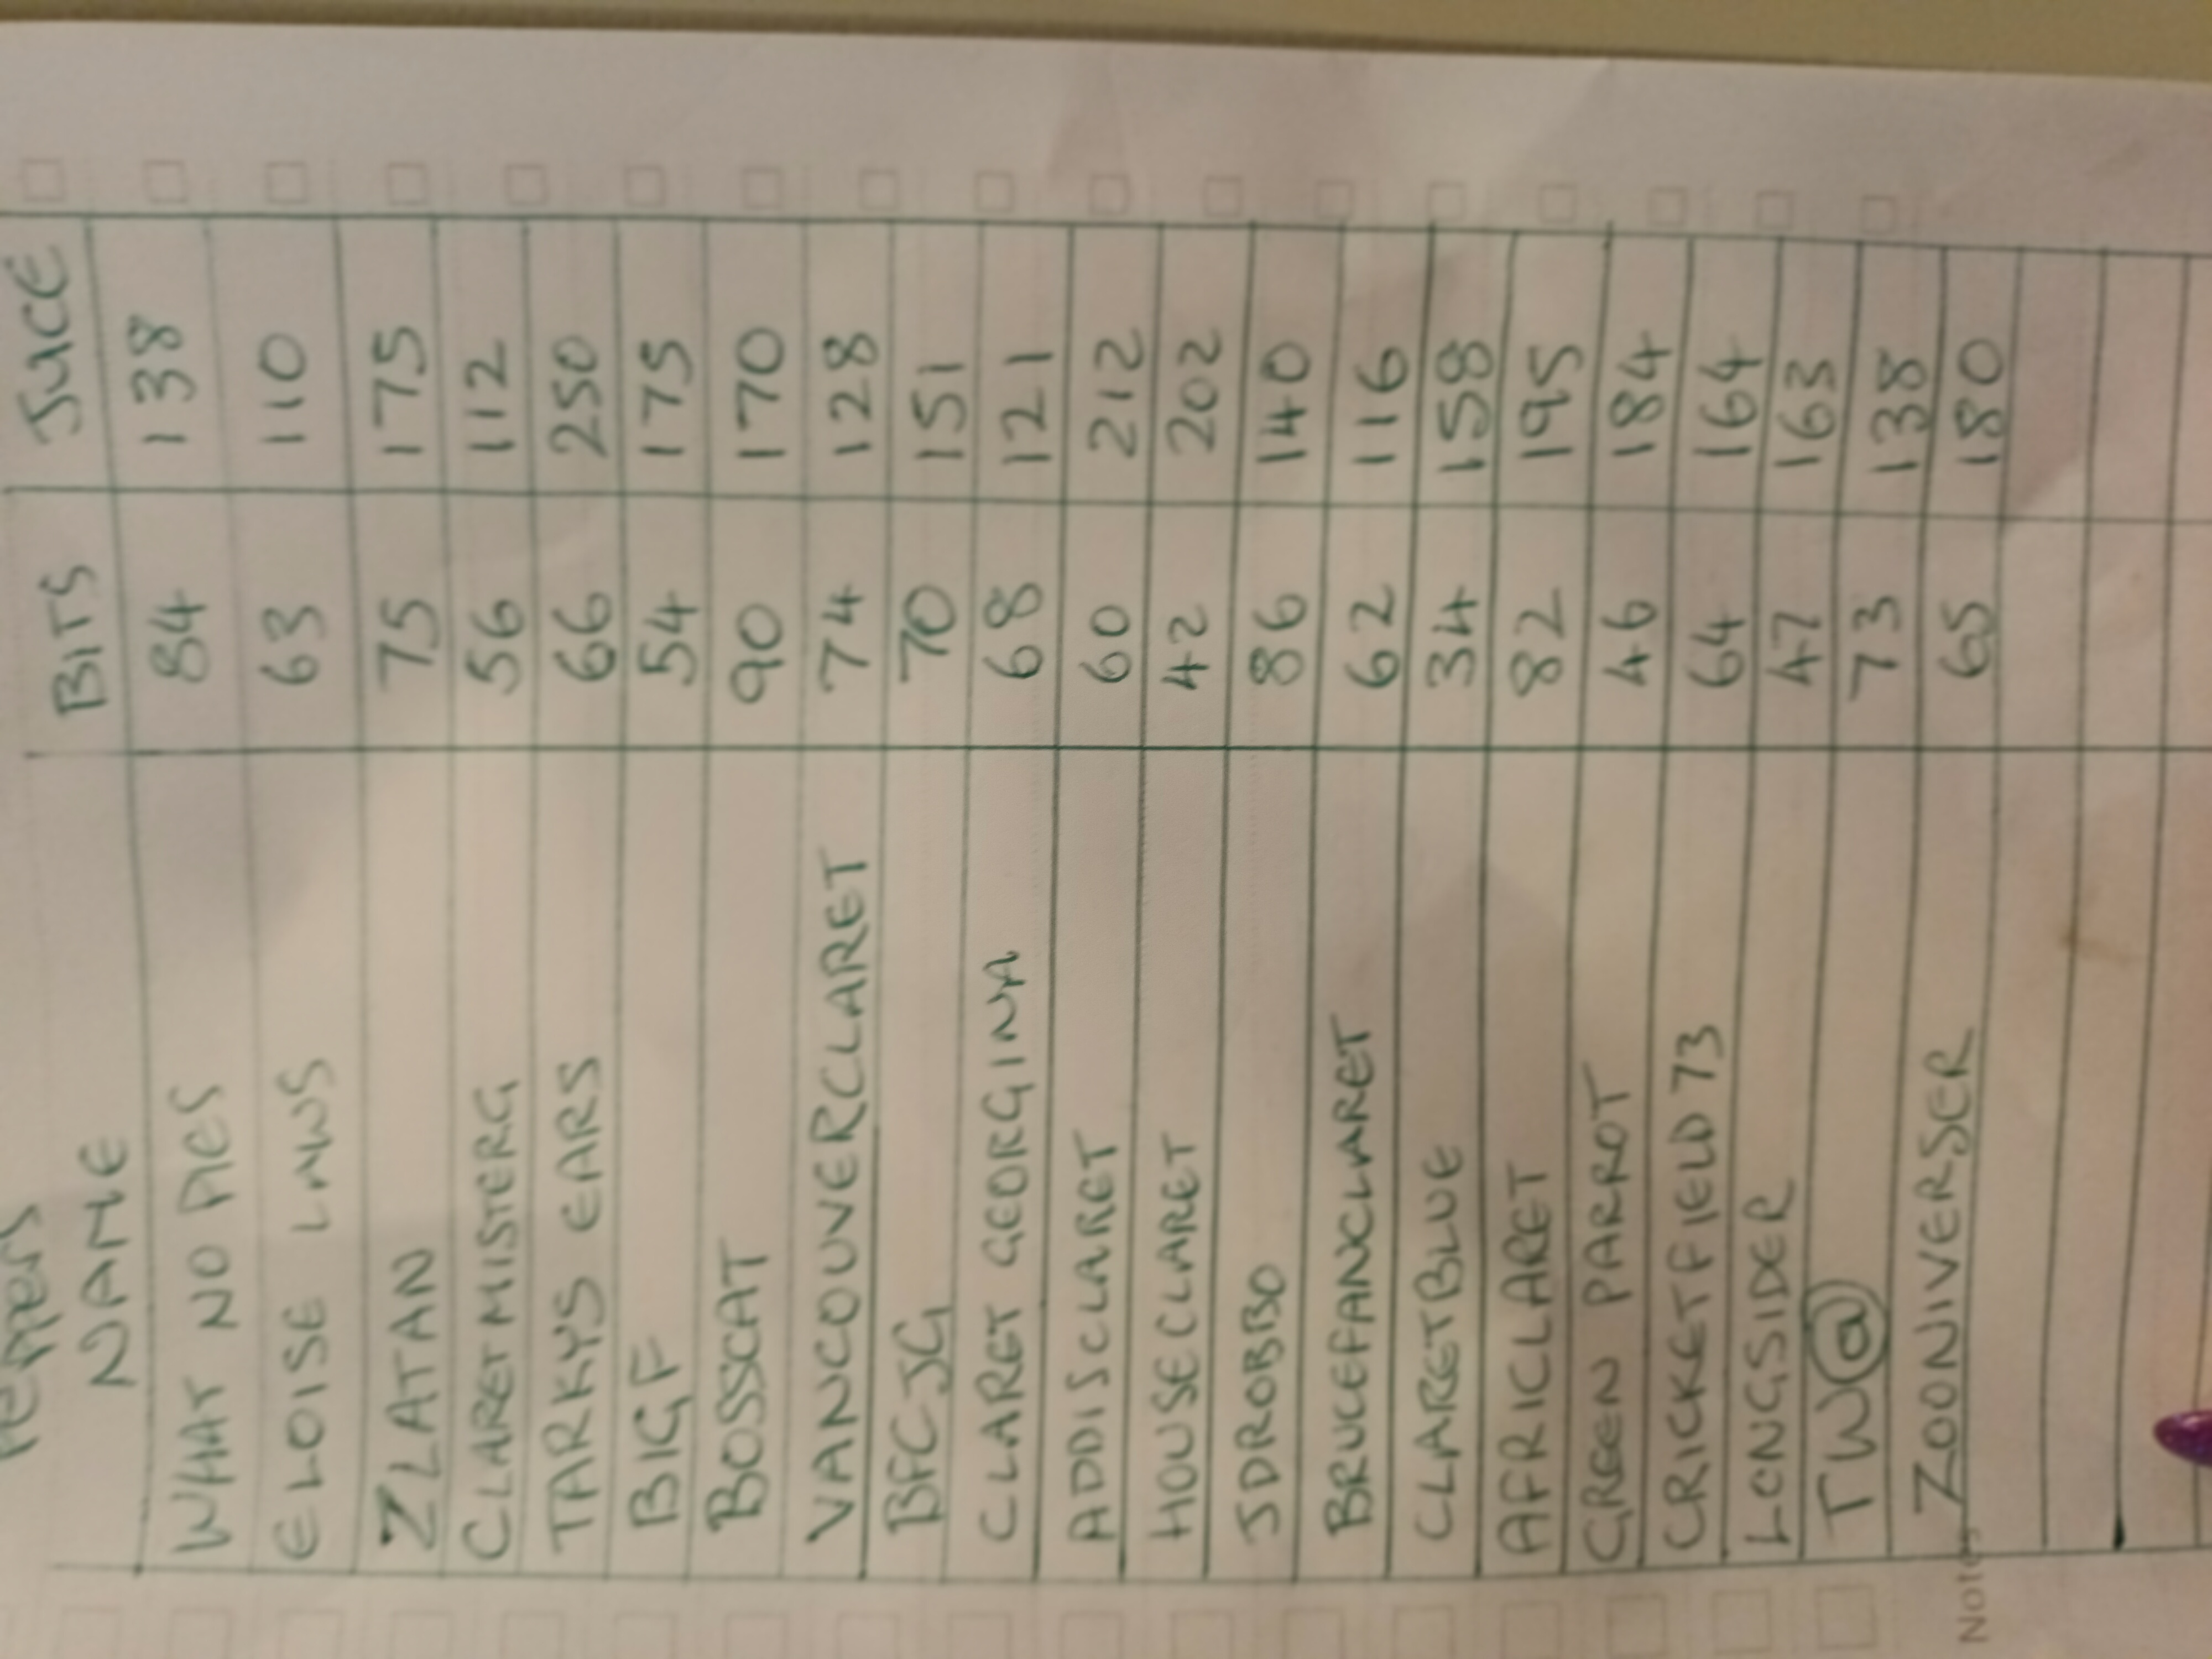 Peppers
NAME BITS JUCE
WHAT NO PIES 84 138
ELOISE LAWS 63 110
ZLATAN 75 175
CLARETMISTERG 56 112
TARKYS EARS 66 250
BIGF 54 175
BOSSCAT 90 170
VANCOUVERCLARET 74 128
BFCJG 70 151
CLARET GEORGINA 68 121
ADDISCLARET 60 212
HOUSECLARET 42 202
JDROBBO 86 140
BRUCEFANCLARET 62 116
CLARETBLUE 34 158
AFRICLARET 82 195
GREEN PARROT 46 184
CRICKETFIELD73 64 164
LONGSIDER 47 163
TW@ 73 138
ZOONIVERSER 65 180
Notes